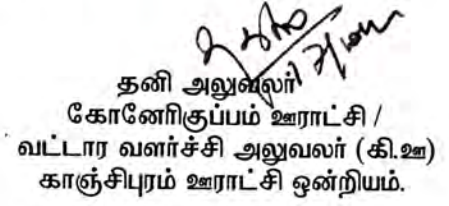 தனி அலுவலர்
கோனேரிகுப்பம் ஊராட்சி /
வட்டார வளர்ச்சி அலுவலர் (கி.ஊ)
காஞ்சிபுரம் ஊராட்சி ஒன்றியம்.